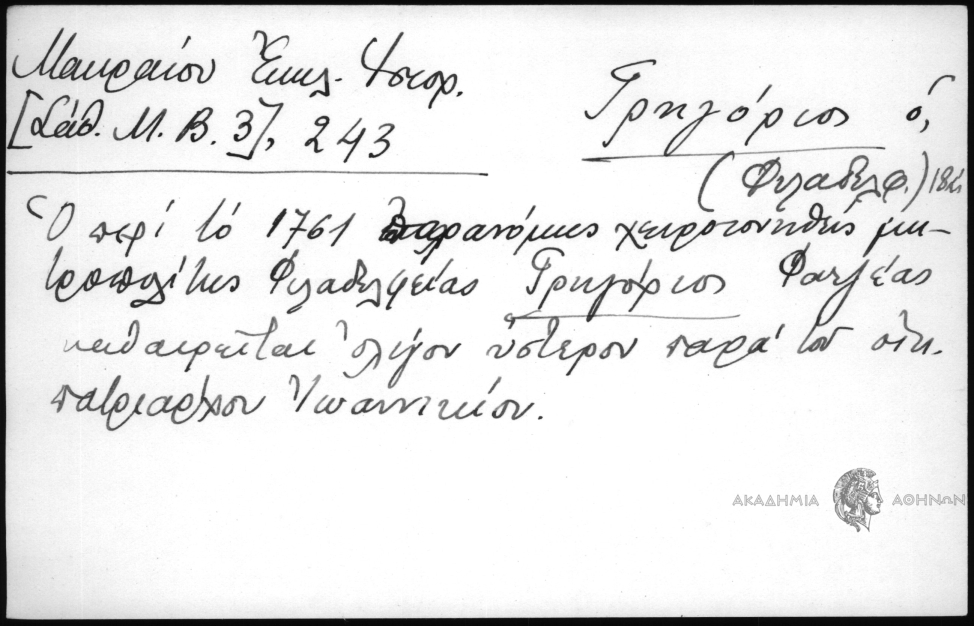 Μακραίου Ἐκκλ. Ἱστορ.
[Σάθ. Μ. Β. 3], 243
Γρηγόριος ὁ,
(Φιλαδελφ.)
Ὁ περί τό 1761 παρανόμως χειροτονηθείς μη-
τροπολίτης Φιλαδελφείας Γρηγόριος Φατζέας
καθαιρεῖται ὀλίγον ὕστερον παρά τοῦ οἰκ.
πατριάρχου Ἰωαννικίου.
ΑΚΑΔΗΜΙΑ ΑΘΗΝΩΝ